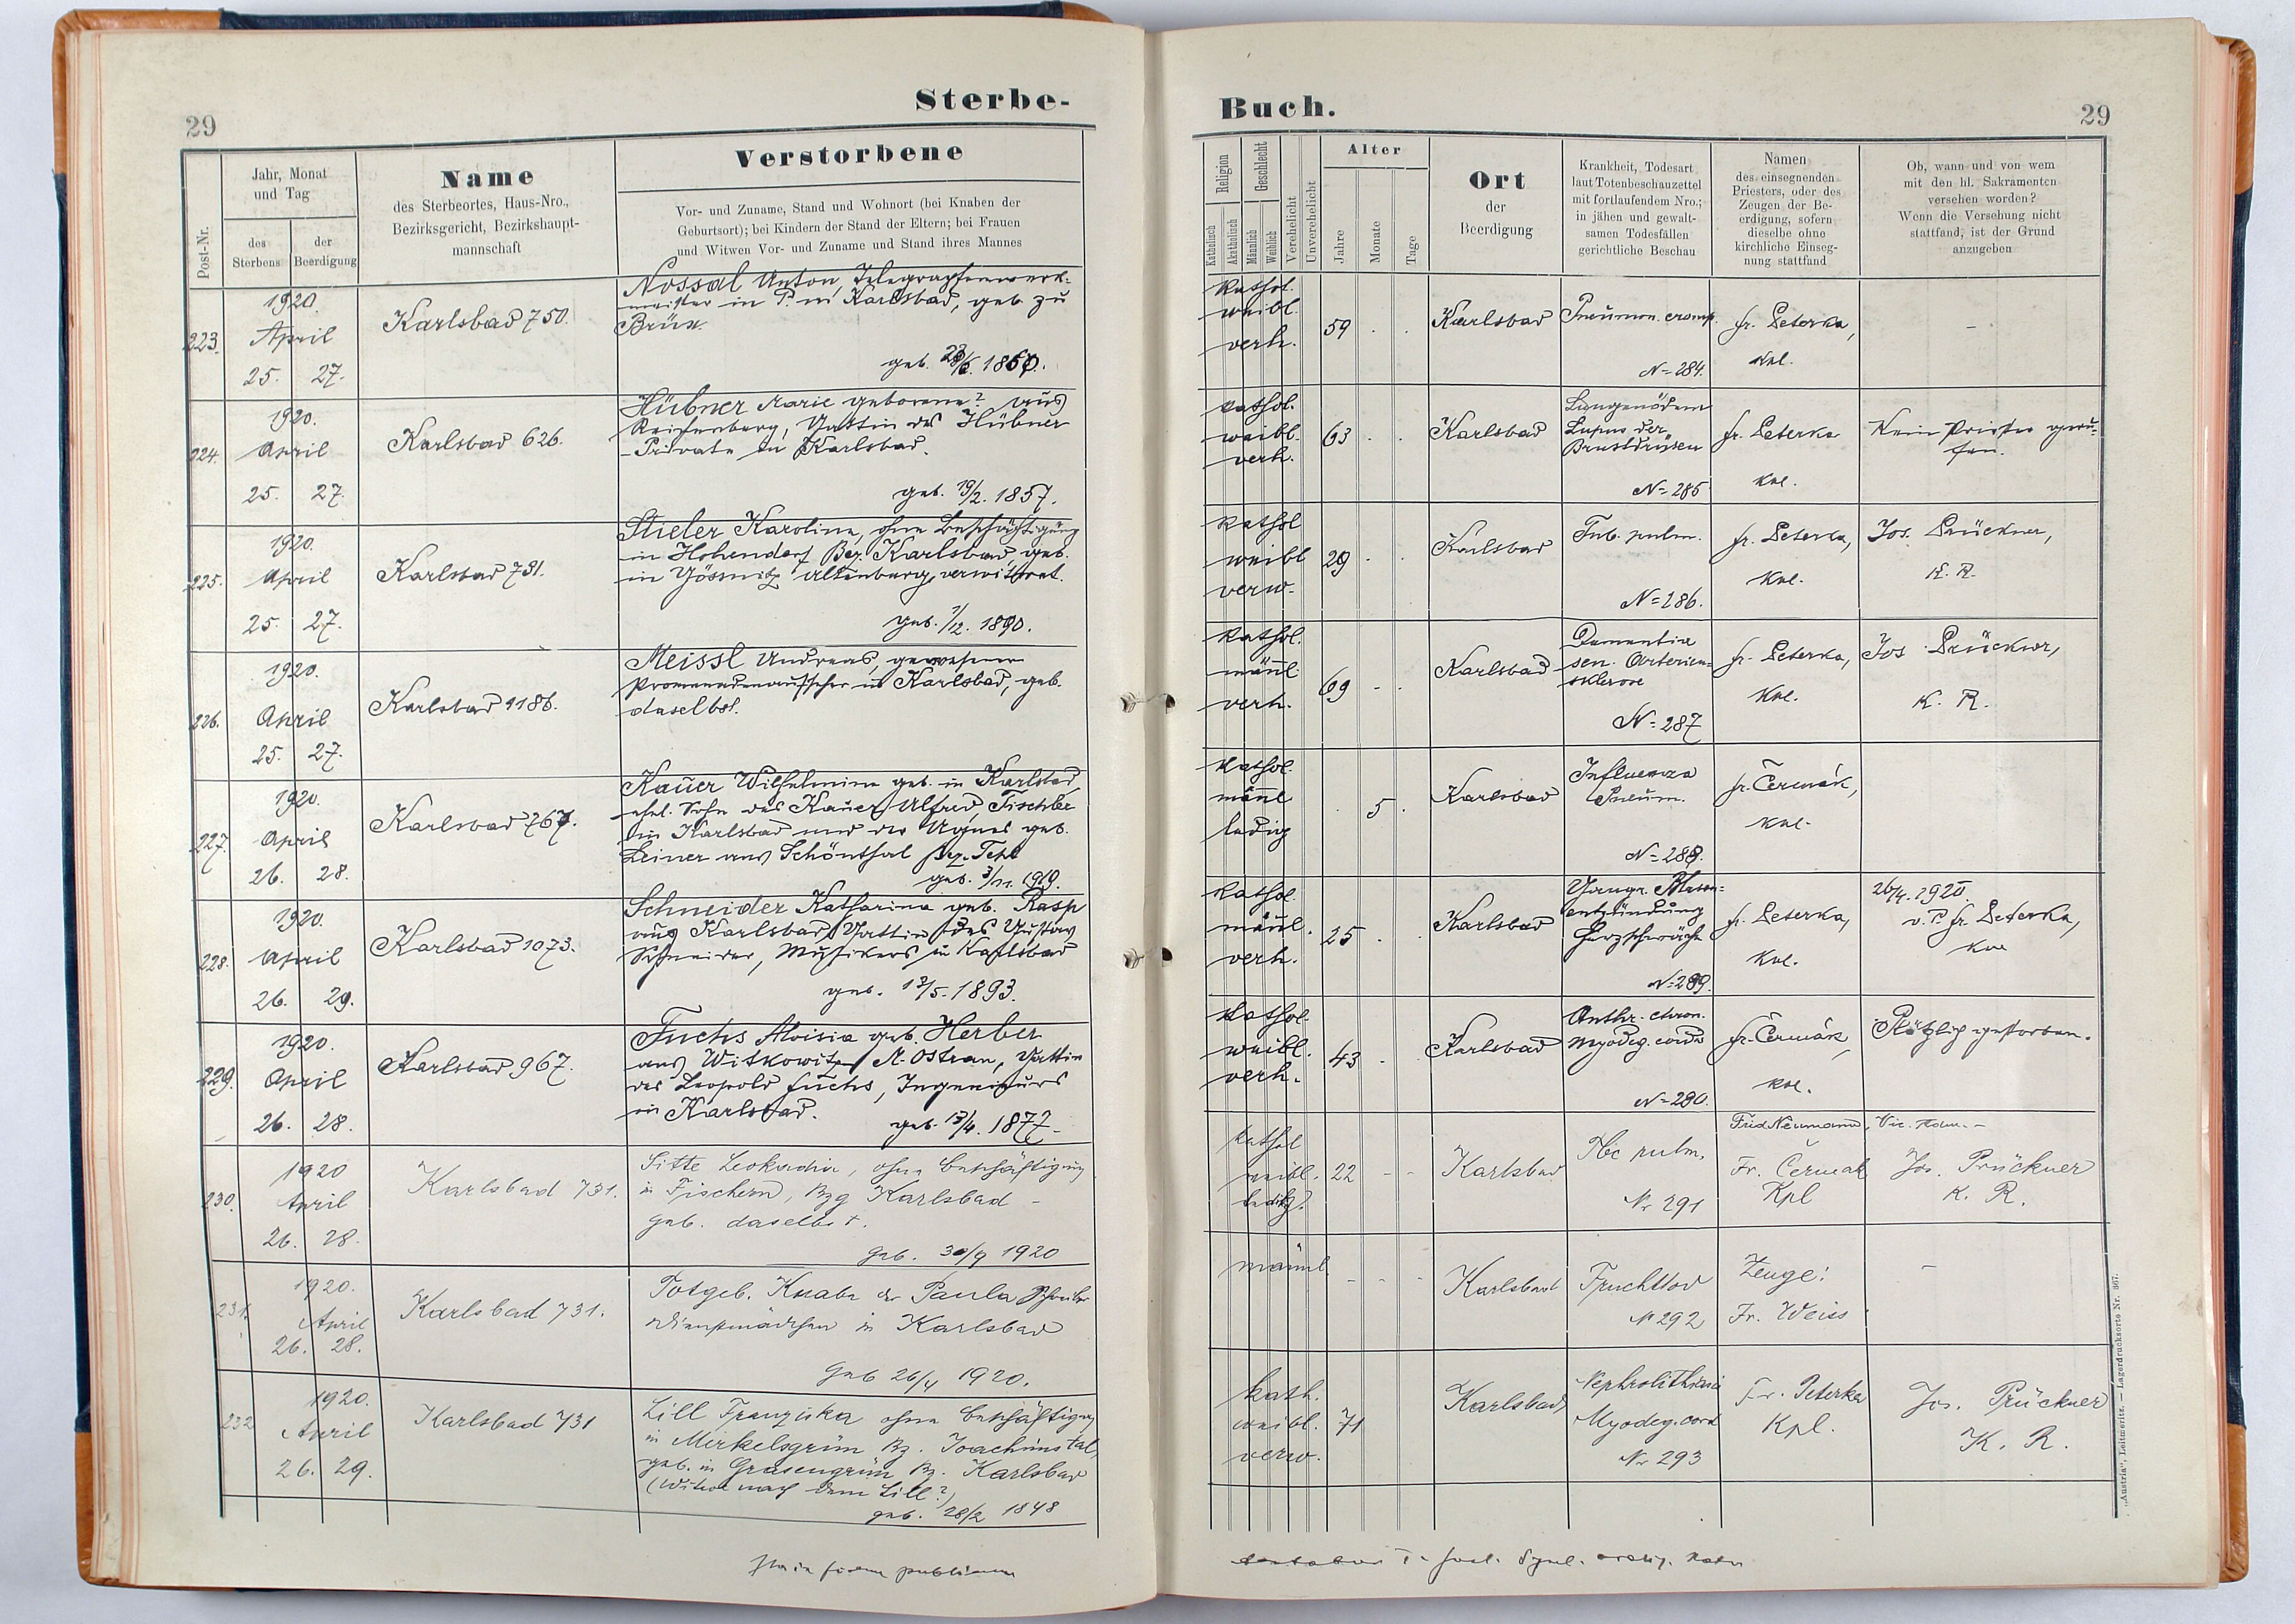 29
Sterbe-
Post-Nr.
Jahr, Monat
und Tag
des
Sterbens
der
Beerdigung
Name
des Sterbeortes, Haus-Nro.,
Bezirksgericht, Bezirkshaupt-
mannschaft
Verstorbene
Vor- und Zuname, Stand und Wohnort (bei Knaben der
Geburtsort); bei Kindern der Stand der Eltern; bei Frauen
und Witwen Vor- und Zuname und Stand ihres Mannes
223.
1920.
April
25. 27.
Karlsbad 750.
Nossal Anton, Telegraphenwerk-
meister in P. in Karlsbad, geb. zu
Brüx.
geb.
224.
1920.
April
25. 27.
Karlsbad 626.
Hübner Marie geborene? aus
Reichenberg, Gattin des Hübner
- Private in Karlsbad.
geb. 19/2. 1857.
225.
1920.
April
25. 27.
Karlsbad 731.
Stieler Karolina, ohne Beschäftigung
in Hohendorf Bez. Karlsbad, geb.
in Gössnitz Altenburg, verwitwet.
geb. 1/12. 1890.
226.
1920.
April
25. 27.
Karlsbad 1186.
Meissl Andreas, gewesener
Promenadenaufseher in Karlsbad, geb.
daselbst.
227.
1920.
April
26. 28.
Karlsbad 767.
Kauer Wilhelmine geb. in Karlsbad,
ehel. Sohn des Kauer Alfred, Tischler
in Karlsbad und der Agnes geb.
Leiner aus Schönthal Bez. Tepl
geb. 3/11. 1919.
228.
1920.
April
26. 29.
Karlsbad 1073.
Schneider Katharina geb. Rasp
aus Karlsbad, Gattin des Gustav
Schneider, Musikers in Karlsbad
geb. 13/5. 1893.
229.
1920.
April
26. 28.
Karlsbad 967.
Fuchs Aloisia geb. Herber
aus Witkowitz M. Ostrau, Gattin
des Leopold Fuchs, Ingenieurs
in Karlsbad.
geb. 13/4. 1877.
230.
1920
April
26. 28.
Karlsbad 731.
Sitte Leokadia, ohne Beschäftigung
in Fischern, Bzg Karlsbad -
geb. daselbst.
geb. 30/9 1920
231.
1920.
April
26. 28.
Karlsbad 731.
Totgeb. Knabe der Paula
Dienstmädchen in Karlsbad
Geb 26/4 1920.
232
1920.
April
26. 29.
Karlsbad 731
Lill Franziska ohne Beschäftigung
in Mirkelsgrün Bz. Joachimstal,
geb. in Grasengrün Bz. Karlsbad
(Witwe nach dem Lill?)
geb. 28/2 1848
Buch.
29
Religion
Katholisch
Akatholisch
Geschlecht
Männlich
Weiblich
Verehelicht
Unverehelicht
Alter
Jahre
Monate
Tage
Ort
der
Beerdigung
Krankheit, Todesart
laut Totenbeschauzettel
mit fortlaufendem Nro.;
in jähen und gewalt-
samen Todesfällen
gerichtliche Beschau
Namen
des einsegnenden
Priesters, oder des
Zeugen der Be-
erdigung, sofern
dieselbe ohne
kirchliche Einseg-
nung stattfand
Ob, wann und von wem
mit den hl. Sakramenten
versehen worden?
Wenn die Versehung nicht
stattfand, ist der Grund
anzugeben
kathol.
weibl.
verh.
59
Karlsbad
Pneumon. croup.
N= 284.
fr. Peterka,
Kpl.
-
kathol.
weibl.
verh.
63
Karlsbad
Lungenödem
Lupus der
Brustdrüsen
N= 285
fr. Peterka
Kpl.
Kein Priester geru-
fen.
kathol
weibl
verw.
29
Karlsbad
Tub. pulm.
N= 286.
fr. Peterka,
Kpl.
Jos. Prückner,
K. R.
kathol.
männl.
verh.
69
Karlsbad
Dementia
sen. Arterien-
sklerose
N= 287
fr. Peterka,
Kpl.
Jos. Prückner,
K. R.
kathol.
männl
ledig
5
Karlsbad
Influenza
Pneum.
N= 288.
fr. Čermák,
Kpl.
kathol.
männl.
verh.
25
Karlsbad
Gangr. Blasen-
entzündung
Herzschwäche
N= 289.
fr. Peterka,
Kpl.
26/4. 1920
v. P. fr. Peterka,
Kpl
kathol.
weibl.
verh.
43
Karlsbad
chron.
Myodeg. cordis
N= 290.
fr. Čermák,
Kpl.
Plötzlich gestorben.
kathol
weibl.
ledig?
22
Karlsbad
Tbc pulm.
Nr 291
Frid Neumann, Vic. Adm. -
Fr. Čermak
Kpl
Jos. Prückner
K. R.
männl.
Karlsbad
Fruchttod
N 292
Zeuge:
Fr. Weiss
-
kath.
weibl.
verw.
71
Karlsbad,
Nephrolithiasis
Myodeg. cord
Nr 293
Fr. Peterka
Kpl.
Jos. Prückner
K. R.
„Austria“, Leitmeritz. — Lagerdrucksorte Nr. 367.